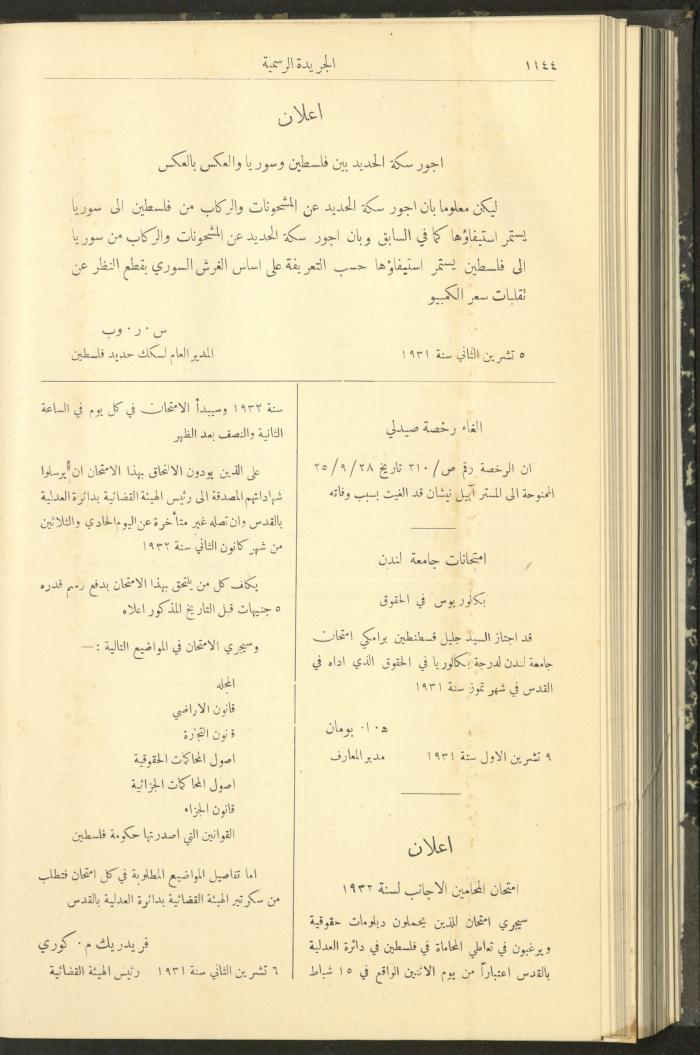 ١١٤٤
الجريدة الرسمية
اعلان
اجور سكة الحديد بين فلسطين وسوريا والعكس بالعكس
ليكن معلوما بان اجور سكة الحديد عن المشحونات والركاب من فلسطين الى سوريا
يستمر استيفاؤها كما في السابق وبان اجور سكة الحديد عن المشحونات والركاب من سوريا
الى فلسطين يستمر استيفاؤها حسب التعريفة على اساس الغرش السوري بقطع النظر عن
تقلبات سعر الكمبيو
س ٠ ر ٠ وب
٥ تشرين الثاني سنة ١٩٣١ المدير العام لسكك حديد فلسطين
الغاء رخصة صيدلي
ان الرخصة رقم ص/٢١٠ تاريخ ٢٥/٩/٢٨
الممنوحة الى المستر آبيل نيشان قد الغيت بسبب وفاته
امتحانات جامعة لندن
بكلوريوس في الحقوق
قد اجتاز السيد جليل قسطنطين برامكي امتحان
جامعة لندن لدرجة بكالوريا في الحقوق الذي اداه في
القدس في شهر تموز سنة ١٩٣١
ه ٠ ا ٠ بومان
٩ تشرين الاول سنة ١٩٣١ مدير المعارف
اعلان
امتحان المحامين الاجانب لسنة ١٩٣٢
سيجري امتحان للذين يحملون دبلومات حقوقية
ويرغبون في تعاطي المحاماة في فلسطين في دائرة العدلية
بالقدس اعتباراً من يوم الاثنين الواقع في ١٥ شباط
سنة ١٩٣٢ وسيبدأ الامتحان في كل يوم في الساعة
الثانية والنصف بعد الظهر
على الذين يودون الالتحاق بهذا الامتحان ان يرسلوا
شهاداتهم المصدقة الى رئيس الهيئة القضائية بدائرة العدلية
بالقدس وان تصله غير متأخرة عن اليوم الحادي والثلاثين
من شهر كانون الثاني سنة ١٩٣٢
يكلف كل من يلتحق بهذا الامتحان بدفع رسم قدره
٥ جنيهات قبل التاريخ المذكور اعلاه
وسيجري الامتحان في المواضيع التالية :—
المجله
قانون الاراضي
قانون التجارة
اصول المحاكمات الحقوقية
اصول المحاكمات الجزائية
قانون الجزاء
القوانين التي اصدرتها حكومة فلسطين
اما تفاصيل المواضيع المطلوبة في كل امتحان فتطلب
من سكرتير الهيئة القضائية بدائرة العدلية بالقدس
فريدريك م ٠ كوري
٦ تشرين الثاني سنة ١٩٣١ رئيس الهيئة القضائية